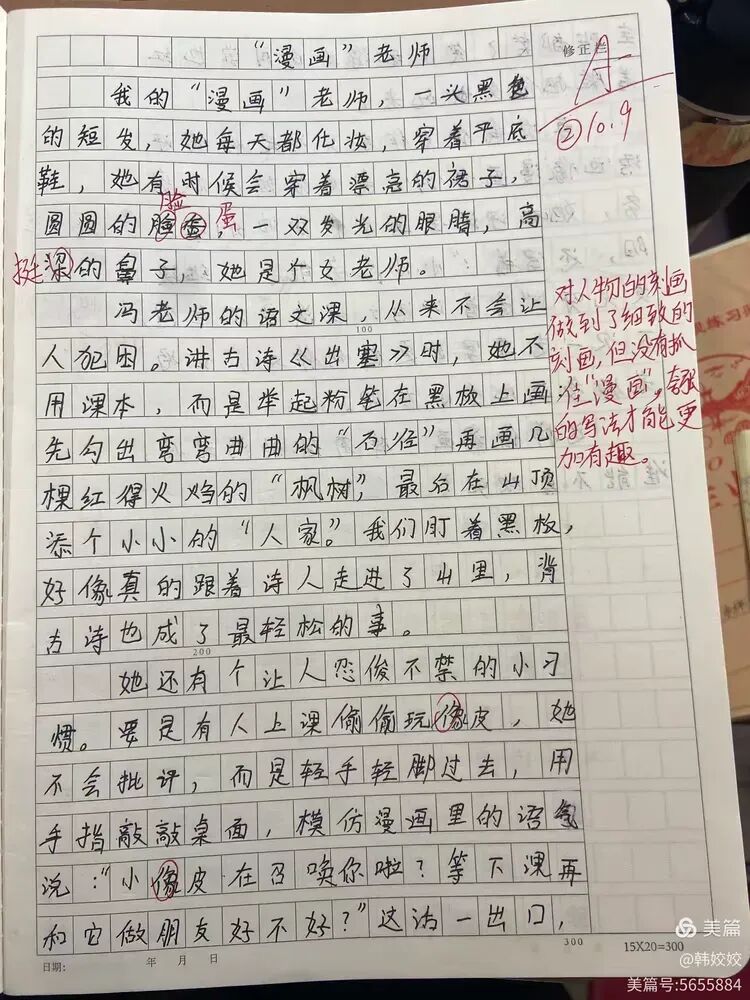 “漫画”老师
修正栏
我的“漫画”老师，一头黑色
的短发，她每天都化妆，穿着平底
②10.9
鞋，她有时候会穿着漂亮的裙子，
脸
圆圆的脸蛋，一双发光的眼睛，高
蛋
挺梁的鼻子，她是个女老师。
冯老师的语文课，从来不会让
100
人犯困。讲古诗《出塞》时，她不
用课本，而是举起粉笔在黑板上画
先勾出弯弯曲曲的“石径”再画几
棵红得火焰的“枫树”，最后在山顶
添个小小的“人家。”我们盯着黑板，
好像真的跟着诗人走进了山里，背
古诗也成了最轻松的事。
200
她还有个让人忍俊不禁的小习
惯。要是有人上课偷偷玩像皮，她
不会批评，而是轻手轻脚过去，用
手指敲敲桌面，模仿漫画里的语气
说：“小像皮在召唤你啦？等下课再
和它做朋友好不好？”这话一出口，
对人物的刻画
做到了细致的
刻画，但没有抓
住“漫画”，夸张
的写法才能更
加有趣。
300
15X20=300
日期： 年 月 日
美篇
@韩姣姣
美篇号:5655884